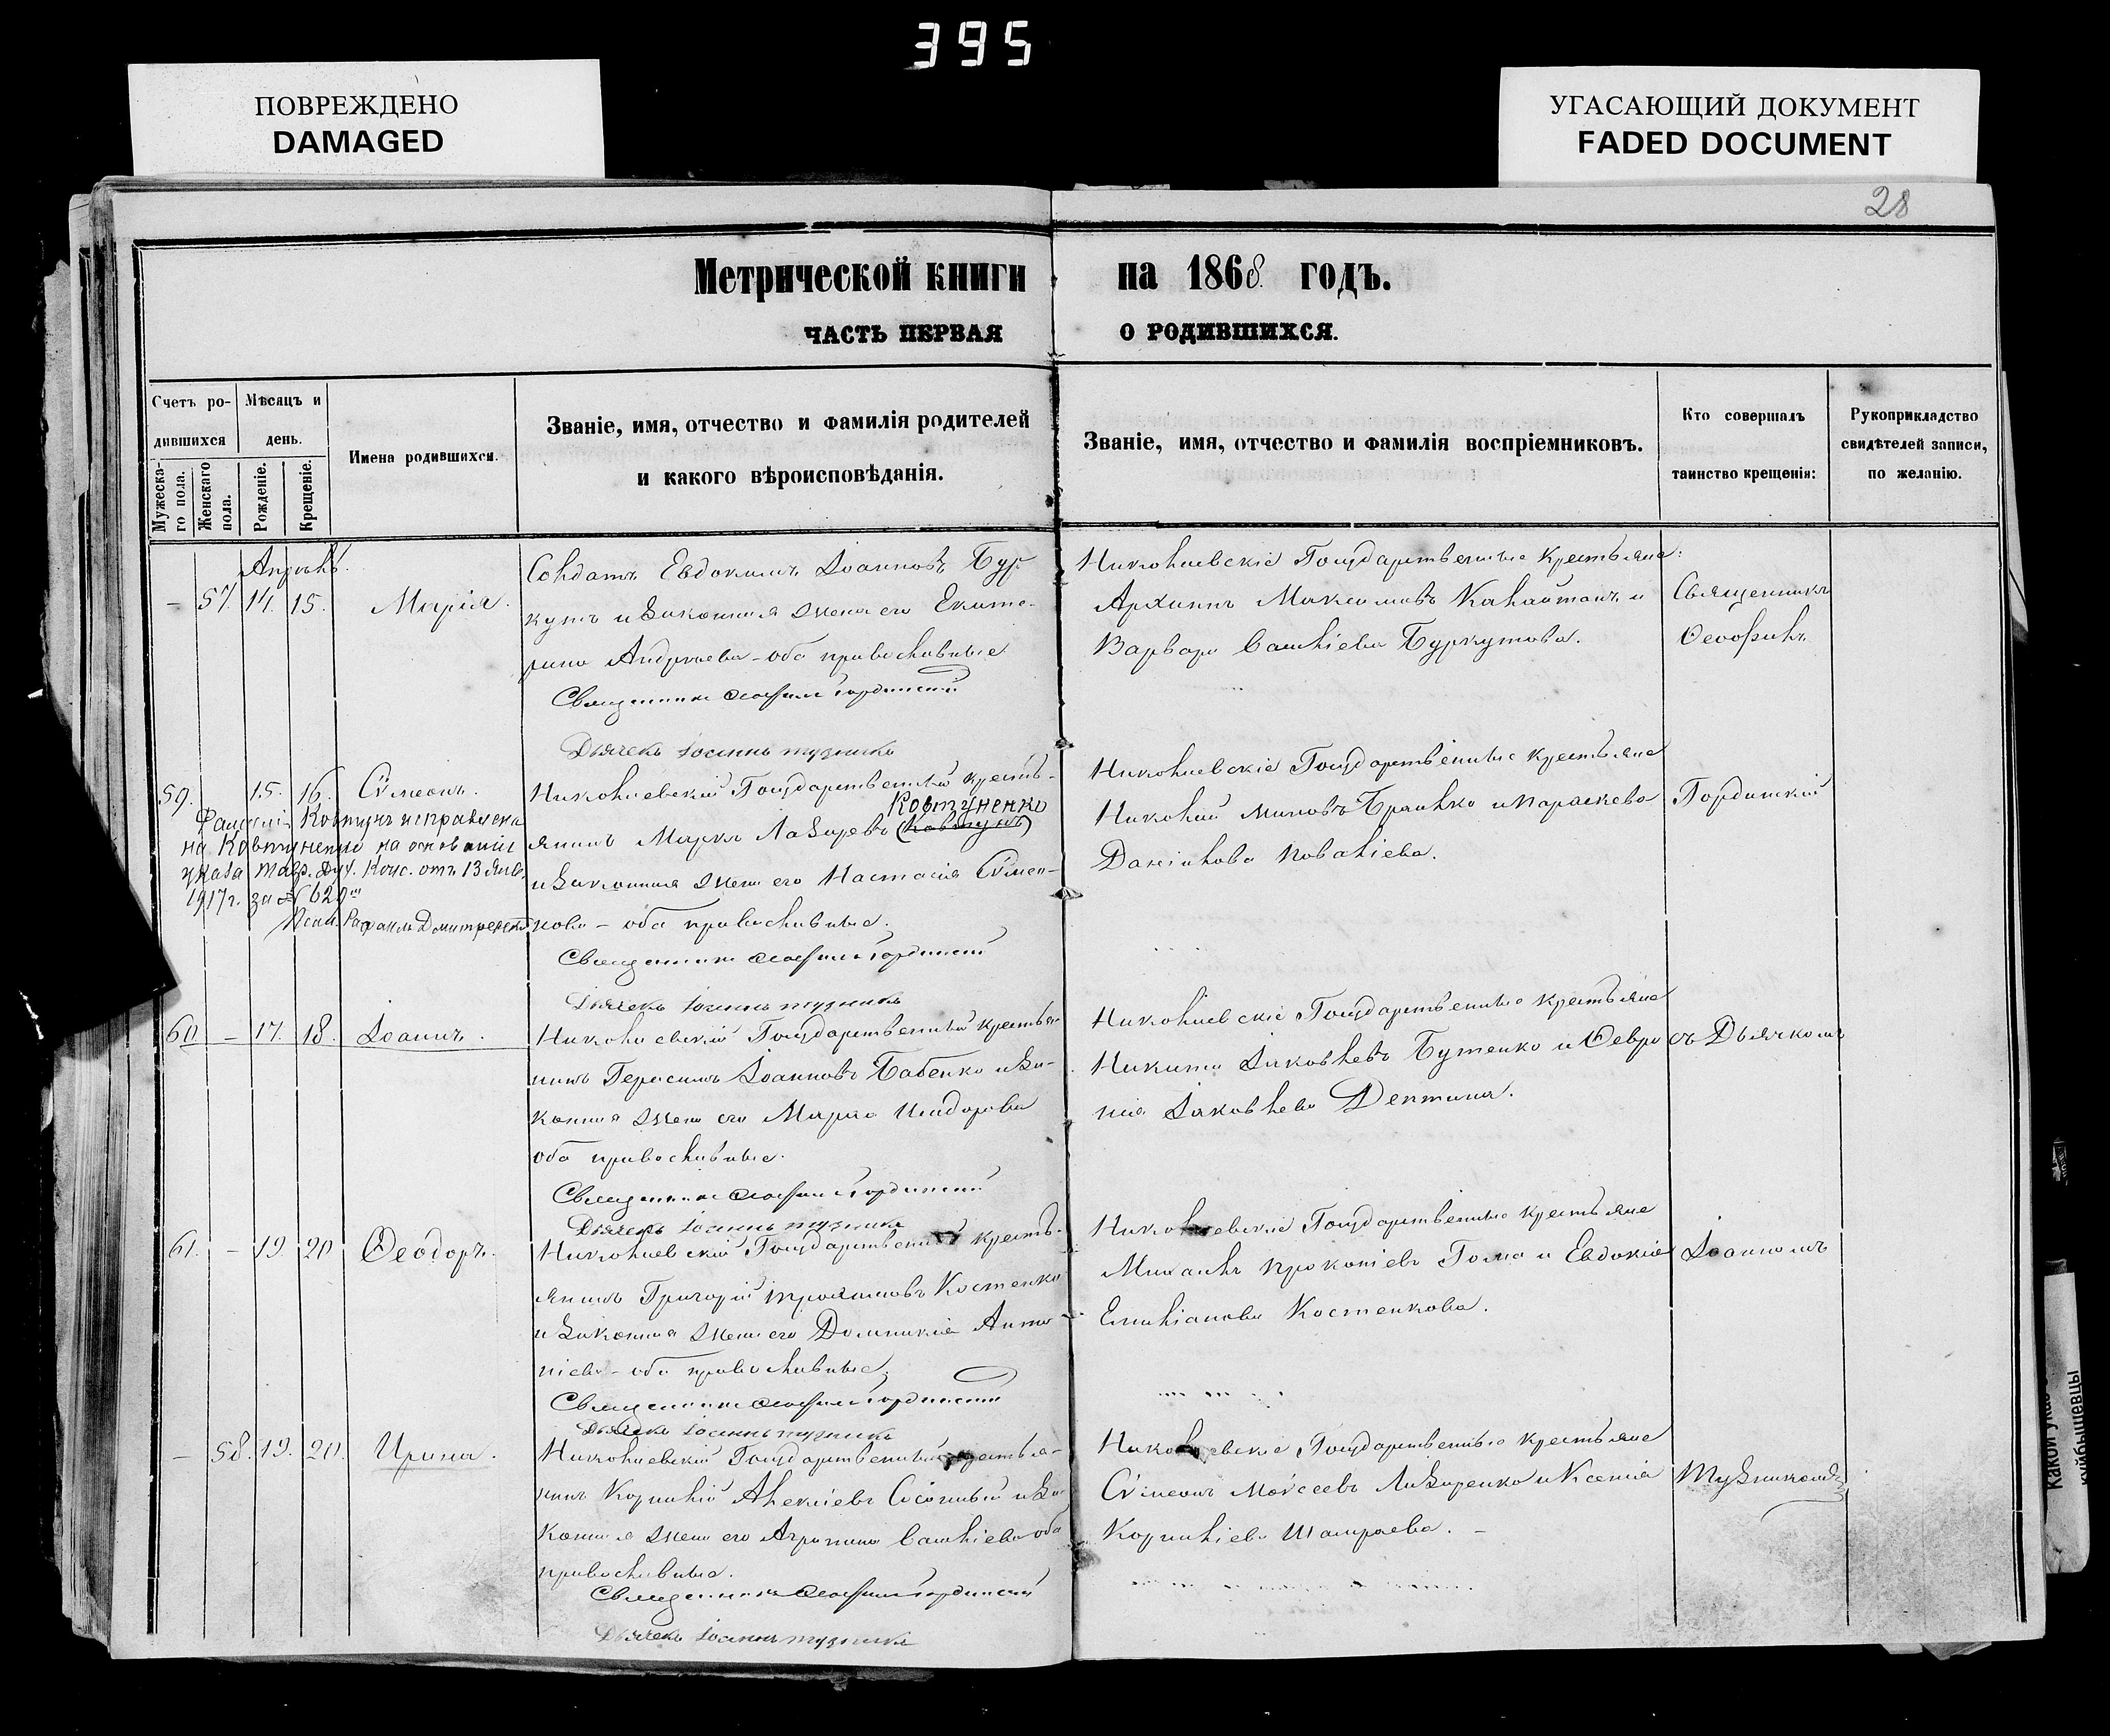 395
ПОВРЕЖДЕНО
DAMAGED
УГАСАЮЩИЙ ДОКУМЕНТ
FADED DOCUMENT
28
Метрической книги на 1868. годъ.
ЧАСТЬ ПЕРВАЯ О РОДИВШИХСЯ.
Счетъ ро-
дившихся
Мужеска-
го пола.
Женскаго
пола.
Мѣсяцъ и
день.
Рожденіе.
Крещеніе.
Имена родившихся.
Званіе, имя, отчество и фамилія родителей
и какого вѣроисповѣданія.
Званіе, имя, отчество и фамилія воспріемниковъ.
Кто совершалъ
таинство крещенія:
Рукоприкладство
свидѣтелей записи,
по желанію.
Апрѣль.
– 57. 14. 15. Марія.
Солдатъ Евдокимъ Іоанновъ Бур
кутъ и законная жена его Екате-
рина Андреева – оба православные
Священникъ Ѳеофилъ Гординскій
Дьячекъ Іоаннъ Тузникъ
Николаевскіе Государственные крестьяне:
Архипъ Максимовъ Калайтанъ и
Варвара Савеліева Буркутова.
Священникъ
Ѳеофилъ
59. 15. 16. Сѵмеонъ.
Фамилія Ковтунъ исправлена
на Ковтуненко на основаніи
указа Тавр. Дух. Конс. отъ 13 Янв.
1917 г. за № 620
Рафаилъ Дмитренко
Николаевскій Государственный кресть-
Ковтуненко
янинъ Маркъ Лазаревъ (Ковтунъ)
и законная жена его Настасія Сѵмео-
нова – оба православные.
Священникъ Ѳеофилъ Гординскій
Дьячекъ Іоаннъ Тузникъ
Николаевскіе Государственные крестьяне
Николай Миновъ и Параскева
Даніилова Ковалева.
Гординскій
60 – 17. 18. Іоаннъ.
Николаевскій Государственный крестья-
нинъ Герасимъ Іоанновъ Бабенко и за-
конная жена его Марія Исидорова
оба православные.
Священникъ Ѳеофилъ Гординскій
Дьячекъ Іоаннъ Тузникъ
Николаевскіе Государственные крестьяне
Никита Іаковлевъ Бутенко и Февро
нія Іаковлева Дептина.
съ Дьячкомъ
61. – 19. 20 Ѳеодоръ.
Николаевскій Государственный кресть-
янинъ Григорій Трофимовъ Костенко
и законная жена его Домникія Анто-
ніева – оба православные.
Священникъ Ѳеофилъ Гординскій
Дьячекъ Іоаннъ Тузникъ
Николаевскіе Государственные крестьяне
Михаилъ Прокопіевъ Гома и Евдокія
Емиліанова Костенкова.
Іоанномъ
– 58. 19. 20. Ирина.
Николаевскій Государственный крестья-
нинъ Корнилій Алексіевъ и за
конная жена его Агрипина Савеліева оба
православные.
Священникъ Ѳеофилъ Гординскій
Дьячекъ Іоаннъ Тузникъ
Николаевскіе Государственные крестьяне
Сѵмеонъ Моѵсеевъ Лазаренко и Ксенія
Корниліева Шамраева. –
Тузникомъ